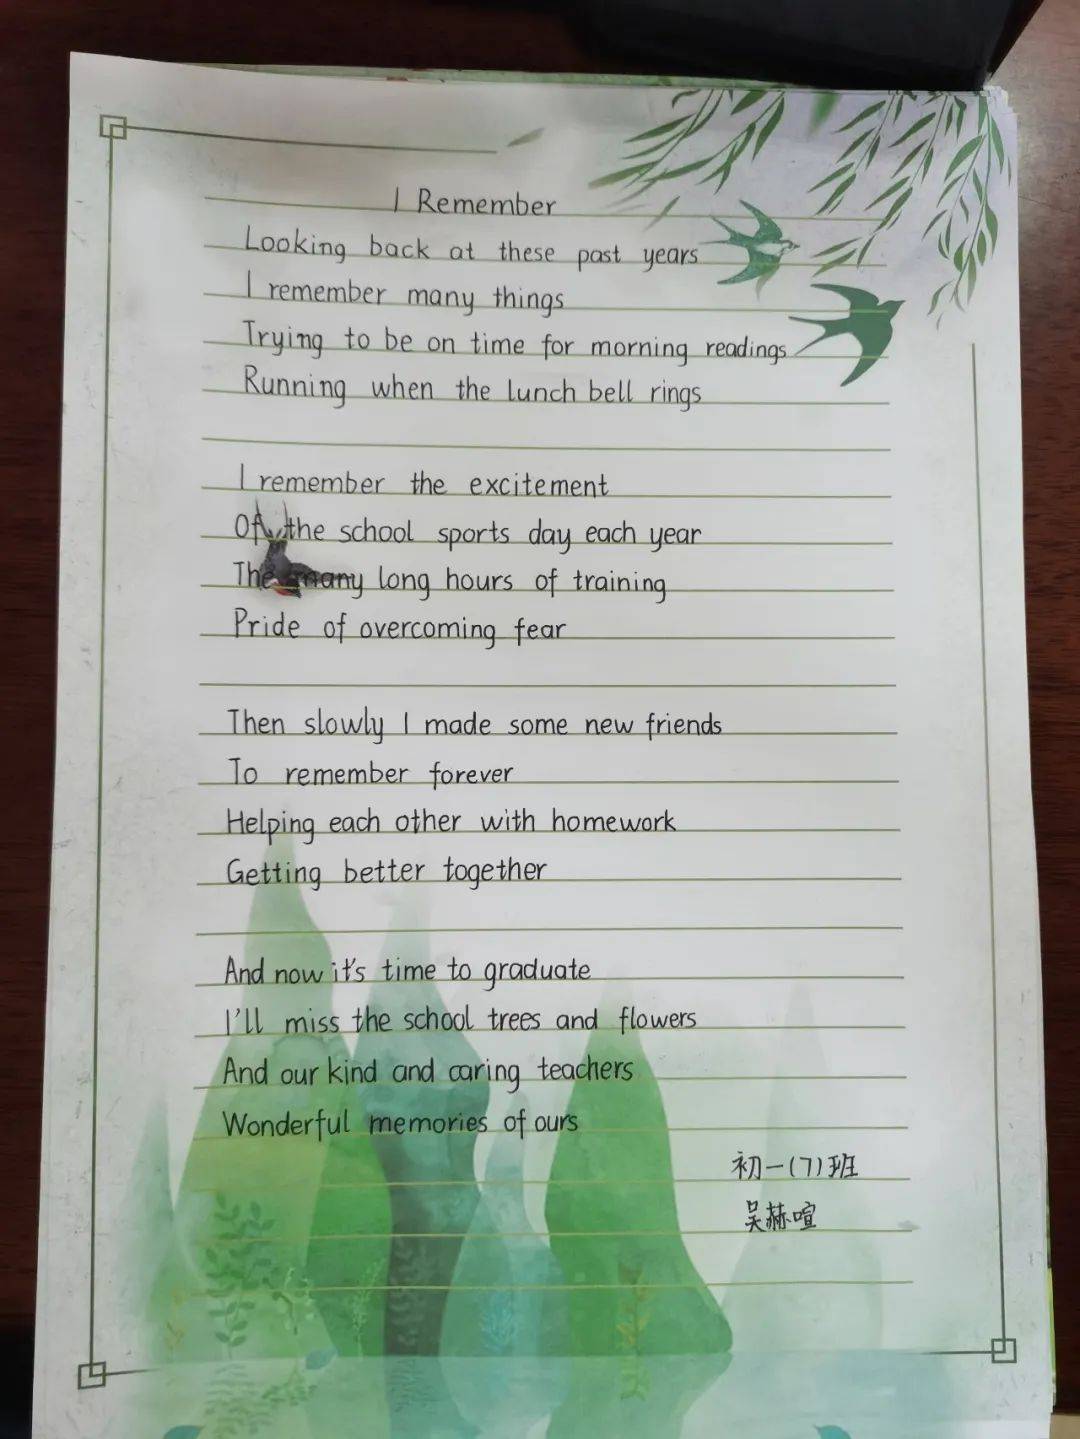 I Remember
Looking back at these past years
I remember many things
Trying to be on time for morning readings
Running when the lunch bell rings
I remember the excitement
Of the school sports day each year
The many long hours of training
Pride of overcoming fear
Then slowly I made some new friends
To remember forever
Helping each other with homework
Getting better together
And now it's time to graduate
I'll miss the school trees and flowers
And our kind and caring teachers
Wonderful memories of ours
初一(7)班
吴赫喧